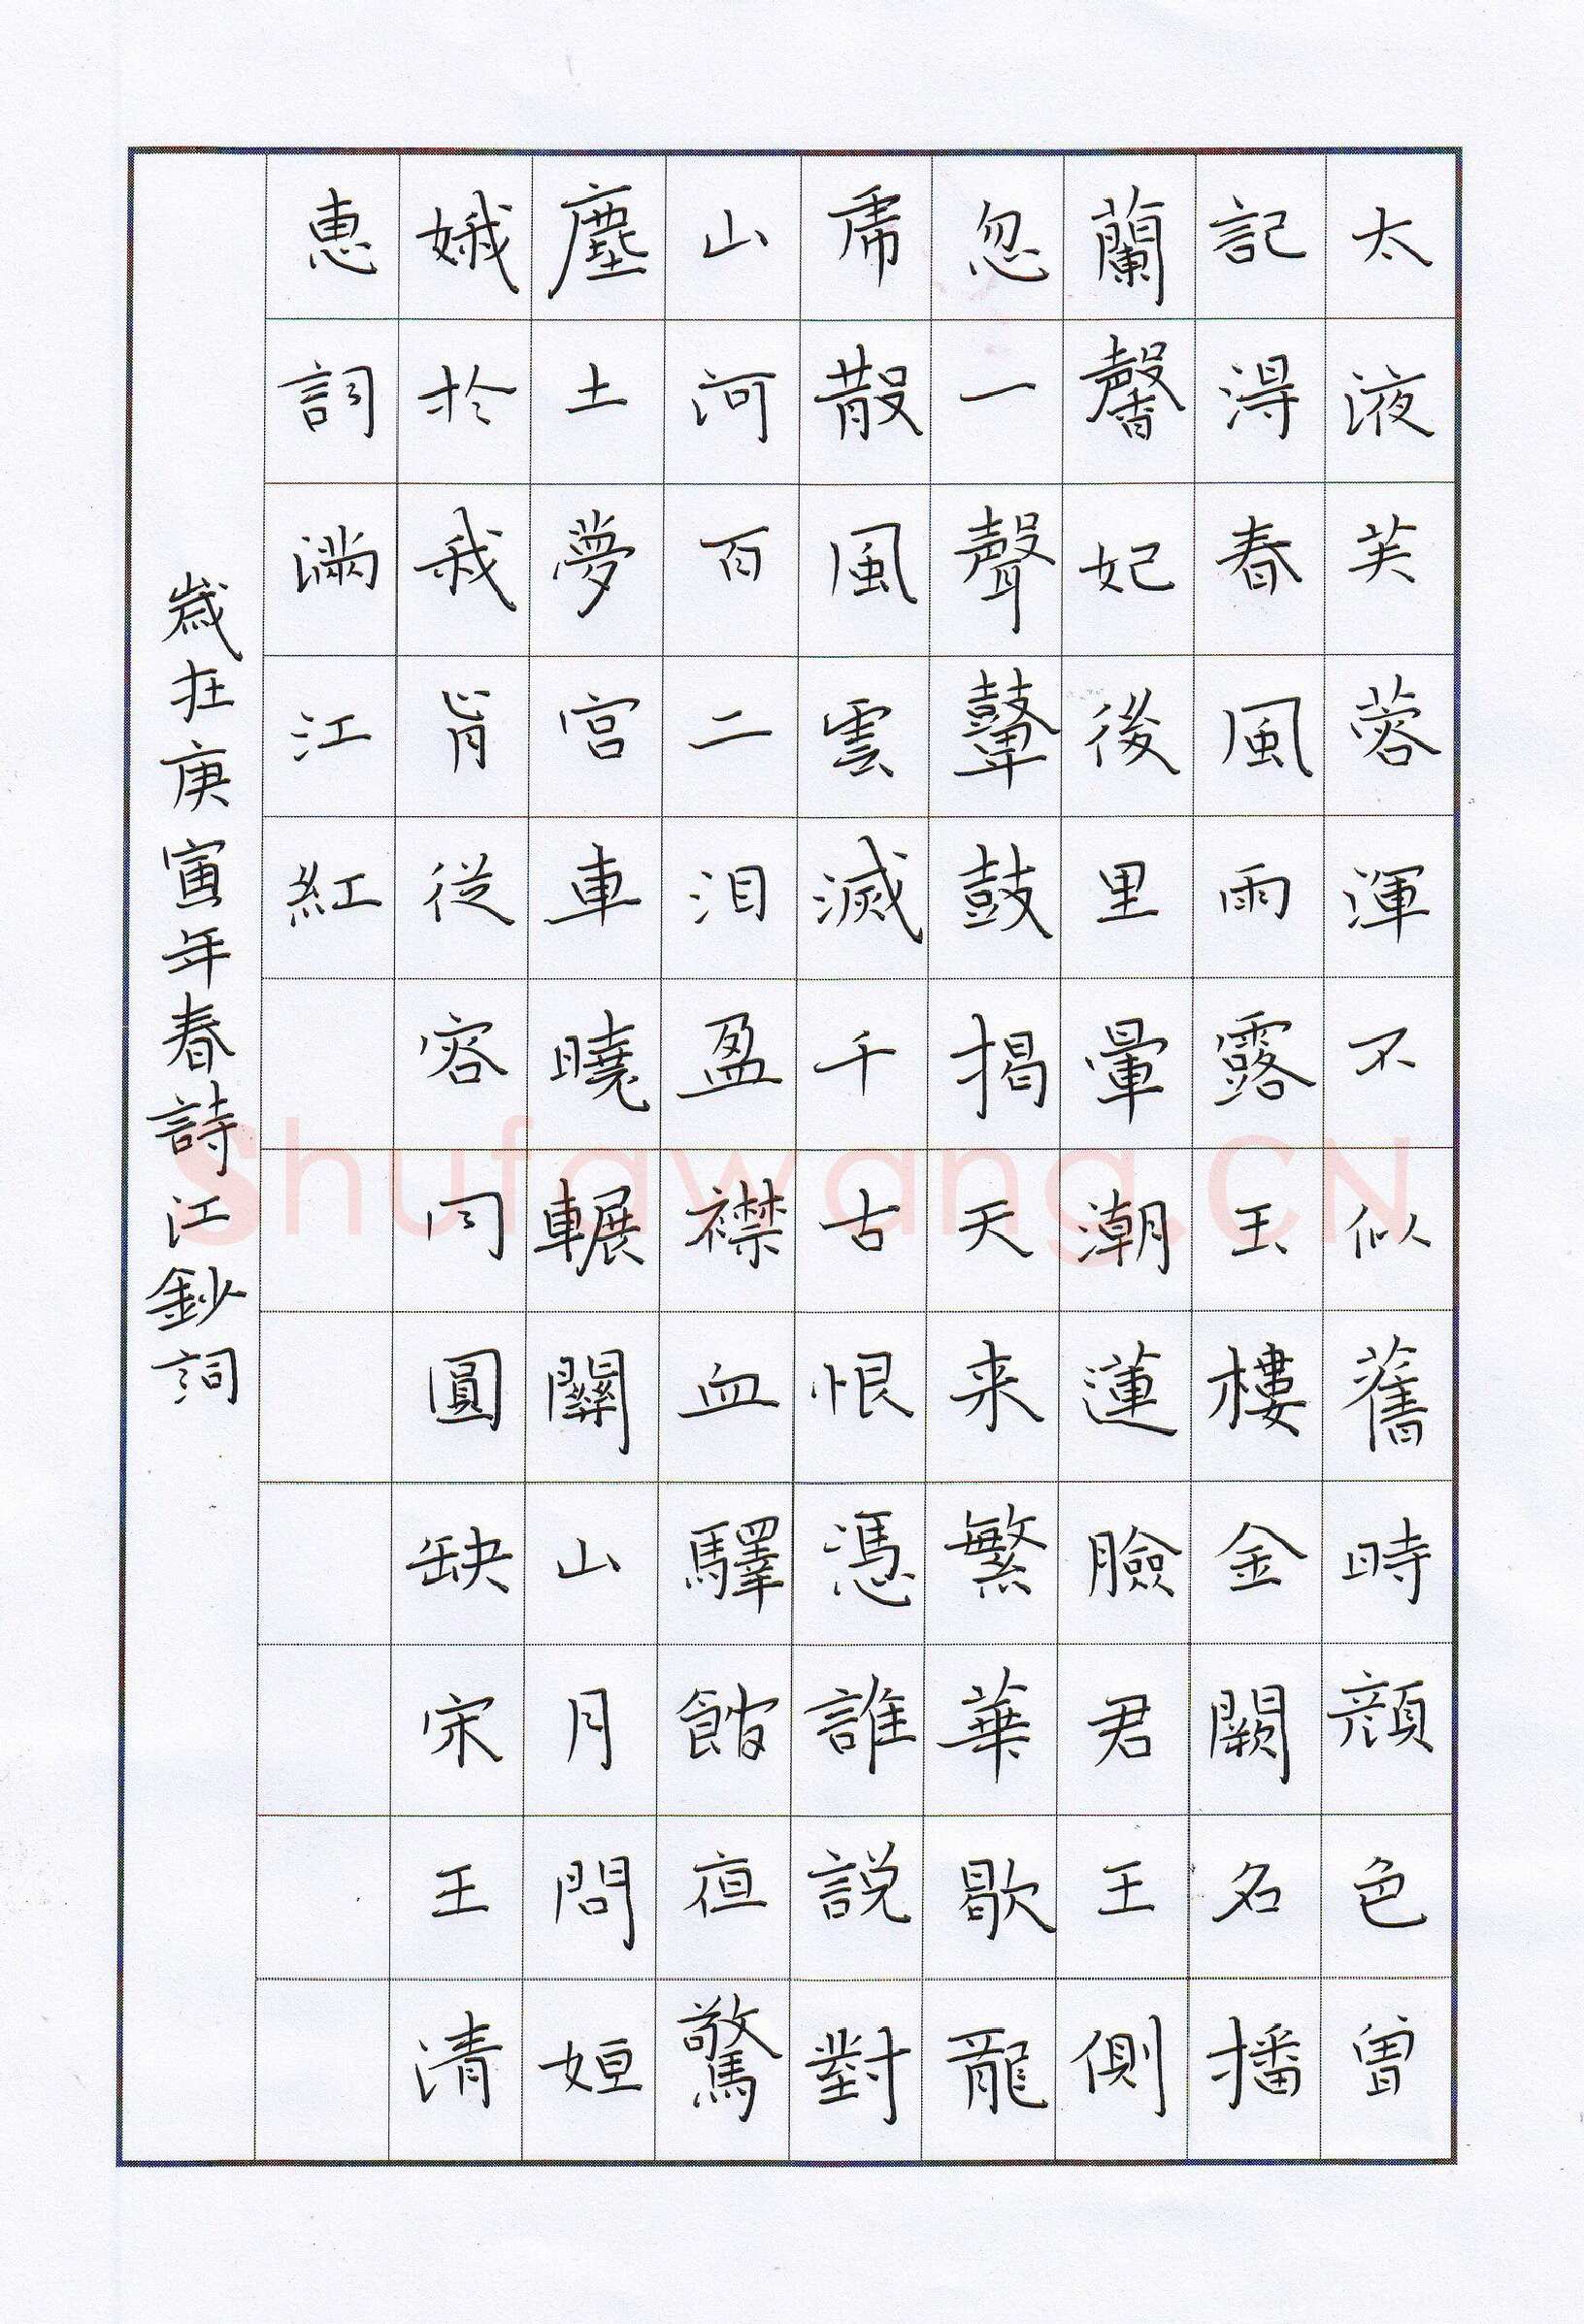 太液芙蓉渾不似舊時顔色曾
記得春風雨露玉樓金闕名播
蘭馨妃後里暈潮蓮臉君王側
忽一聲鼙鼓揭天来繁華歇龍
虎散風雲滅千古恨憑誰説對
山河百二泪盈襟血驛館夜驚
塵土夢宮車曉輾關山月問姮
娥於我肯從容同圓缺宋王清
惠詞滿江紅
歲在庚寅年春詩江鈔詞
Shufawang.CN